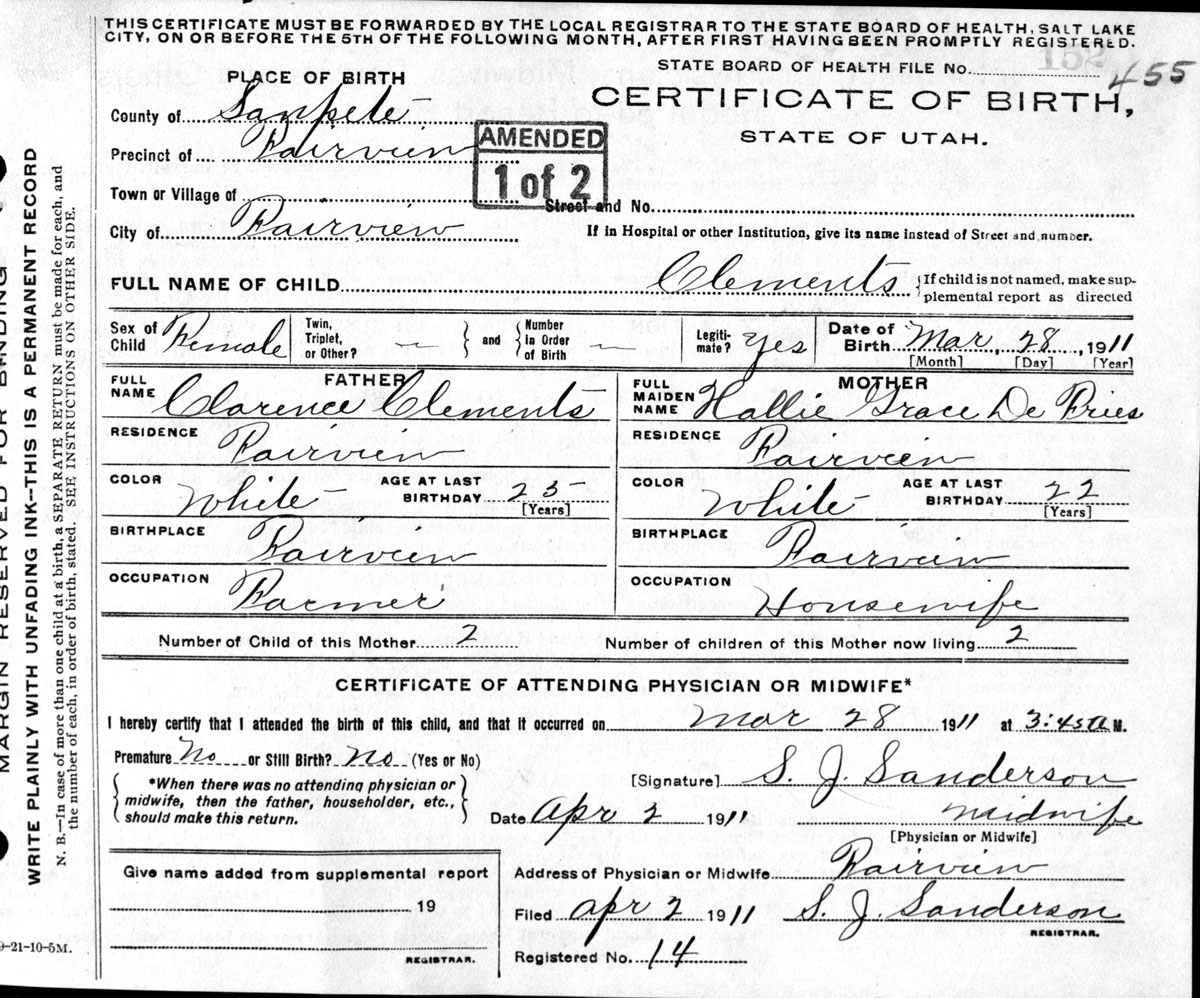 THIS CERTIFICATE MUST BE FORWARDED BY THE LOCAL REGISTRAR TO THE STATE BOARD OF HEALTH, SALT LAKE
CITY, ON OR BEFORE THE 5TH OF THE FOLLOWING MONTH, AFTER FIRST HAVING BEEN PROMPTLY REGISTERED.
PLACE OF BIRTH
STATE BOARD OF HEALTH FILE No. 152 455
County of Sanpete
CERTIFICATE OF BIRTH,
STATE OF UTAH.
Precinct of Fairview
AMENDED
1 of 2
Town or Village of
Street and No.
City of Fairview
If in Hospital or other Institution, give its name instead of Street and number.
FULL NAME OF CHILD Clements {If child is not named, make sup-
plemental report as directed
Sex of Child Female Twin, Triplet, or Other? — } and { Number In Order of Birth — Legiti-mate? Yes Date of Birth Mar, 28, 1911
[Month] [Day] [Year]
FATHER
FULL NAME Clarence Clements
RESIDENCE Fairview
COLOR White AGE AT LAST BIRTHDAY 25
[Years]
BIRTHPLACE Fairview
OCCUPATION Farmer
MOTHER
FULL MAIDEN NAME Hallie Grace De Fries
RESIDENCE Fairview
COLOR White AGE AT LAST BIRTHDAY 22
[Years]
BIRTHPLACE Fairview
OCCUPATION Housewife
Number of Child of this Mother 2 Number of children of this Mother now living 2
CERTIFICATE OF ATTENDING PHYSICIAN OR MIDWIFE*
I hereby certify that I attended the birth of this child, and that it occurred on Mar 28 1911 at 3:45 a M.
Premature No or Still Birth? No (Yes or No)
*When there was no attending physician or
midwife, then the father, householder, etc.,
should make this return.
[Signature] S. J. Sanderson
Date Apr 2 1911 midwife
[Physician or Midwife]
Give name added from supplemental report
19
REGISTRAR.
Address of Physician or Midwife Fairview
Filed Apr 2 1911 S. J. Sanderson
REGISTRAR.
Registered No. 14
9-21-10-5M.
MARGIN RESERVED FOR BINDING
WRITE PLAINLY WITH UNFADING INK--THIS IS A PERMANENT RECORD
N. B.—In case of more than one child at a birth, a SEPARATE RETURN must be made for each, and
the number of each, in order of birth, stated. SEE INSTRUCTIONS ON OTHER SIDE.